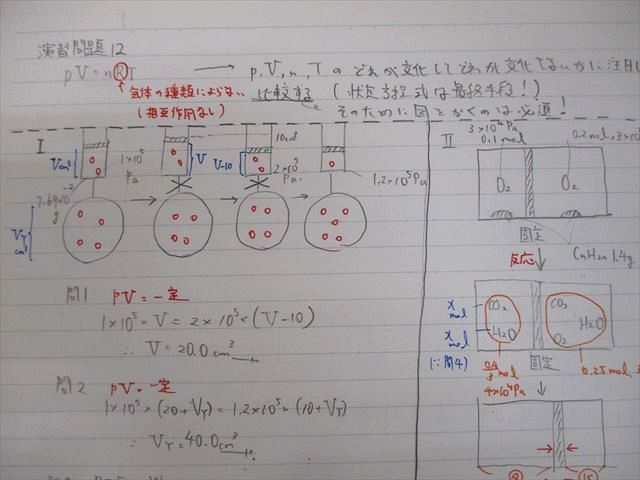 演習問題12
pV = nRT → p, V, n, T の どれが変化して どれが変化してないかに注目し
↑気体の種類によらない 比較する (状態方程式は最終手段!)
(相互作用なし) そのために図をかくのは必須!
I
Vcm³
1×10⁵ Pa
V
V-10
10cm³
2×10⁵ Pa.
1.2×10⁵Pa
g
Vy cm³
問1 pV=一定
1×10⁵×V = 2×10⁵×(V-10)
∴ V = 20.0 cm³
問2 pV=一定
1×10⁵×(20+Vy) = 1.2×10⁵×(10+Vy)
∴ Vy = 40.0cm³
II
3×10⁴Pa
0.1mol
0.2mol, 3×10
O₂ O₂
固定
反応 CnH2n 1.4g
x mol CO₂ CO₂
x mol H₂O H₂O
O₂
(∵問4) mol 固定 0.25mol
4×10⁴Pa